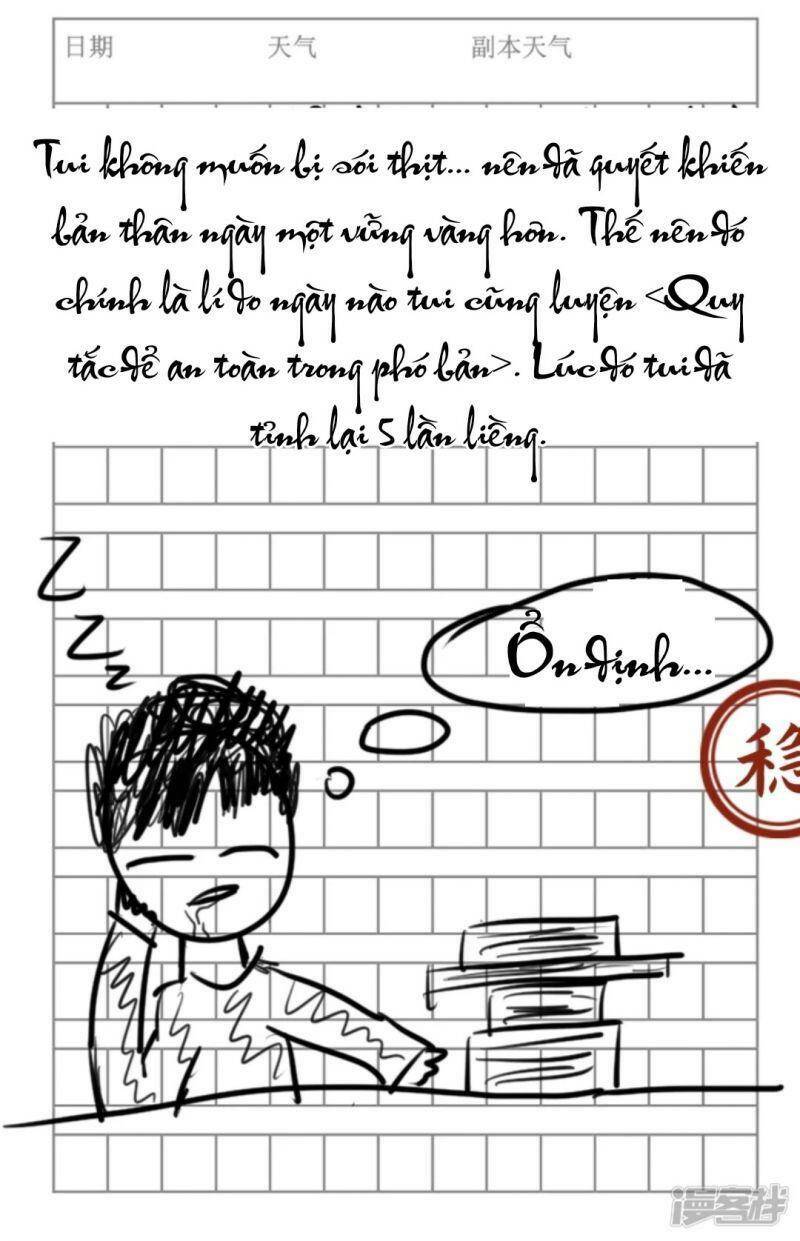 日期 天气 副本天气
Tui không muốn bị sói thịt... nên đã quyết khiến
bản thân ngày một vững vàng hơn. Thế nên đó
chính là lí do ngày nào tui cũng luyện <Quy
tắc để an toàn trong phó bản>. Lúc đó tui đã
tỉnh lại 5 lần liềng.
Z
Z
z
Ổn định...
稳
漫客栈